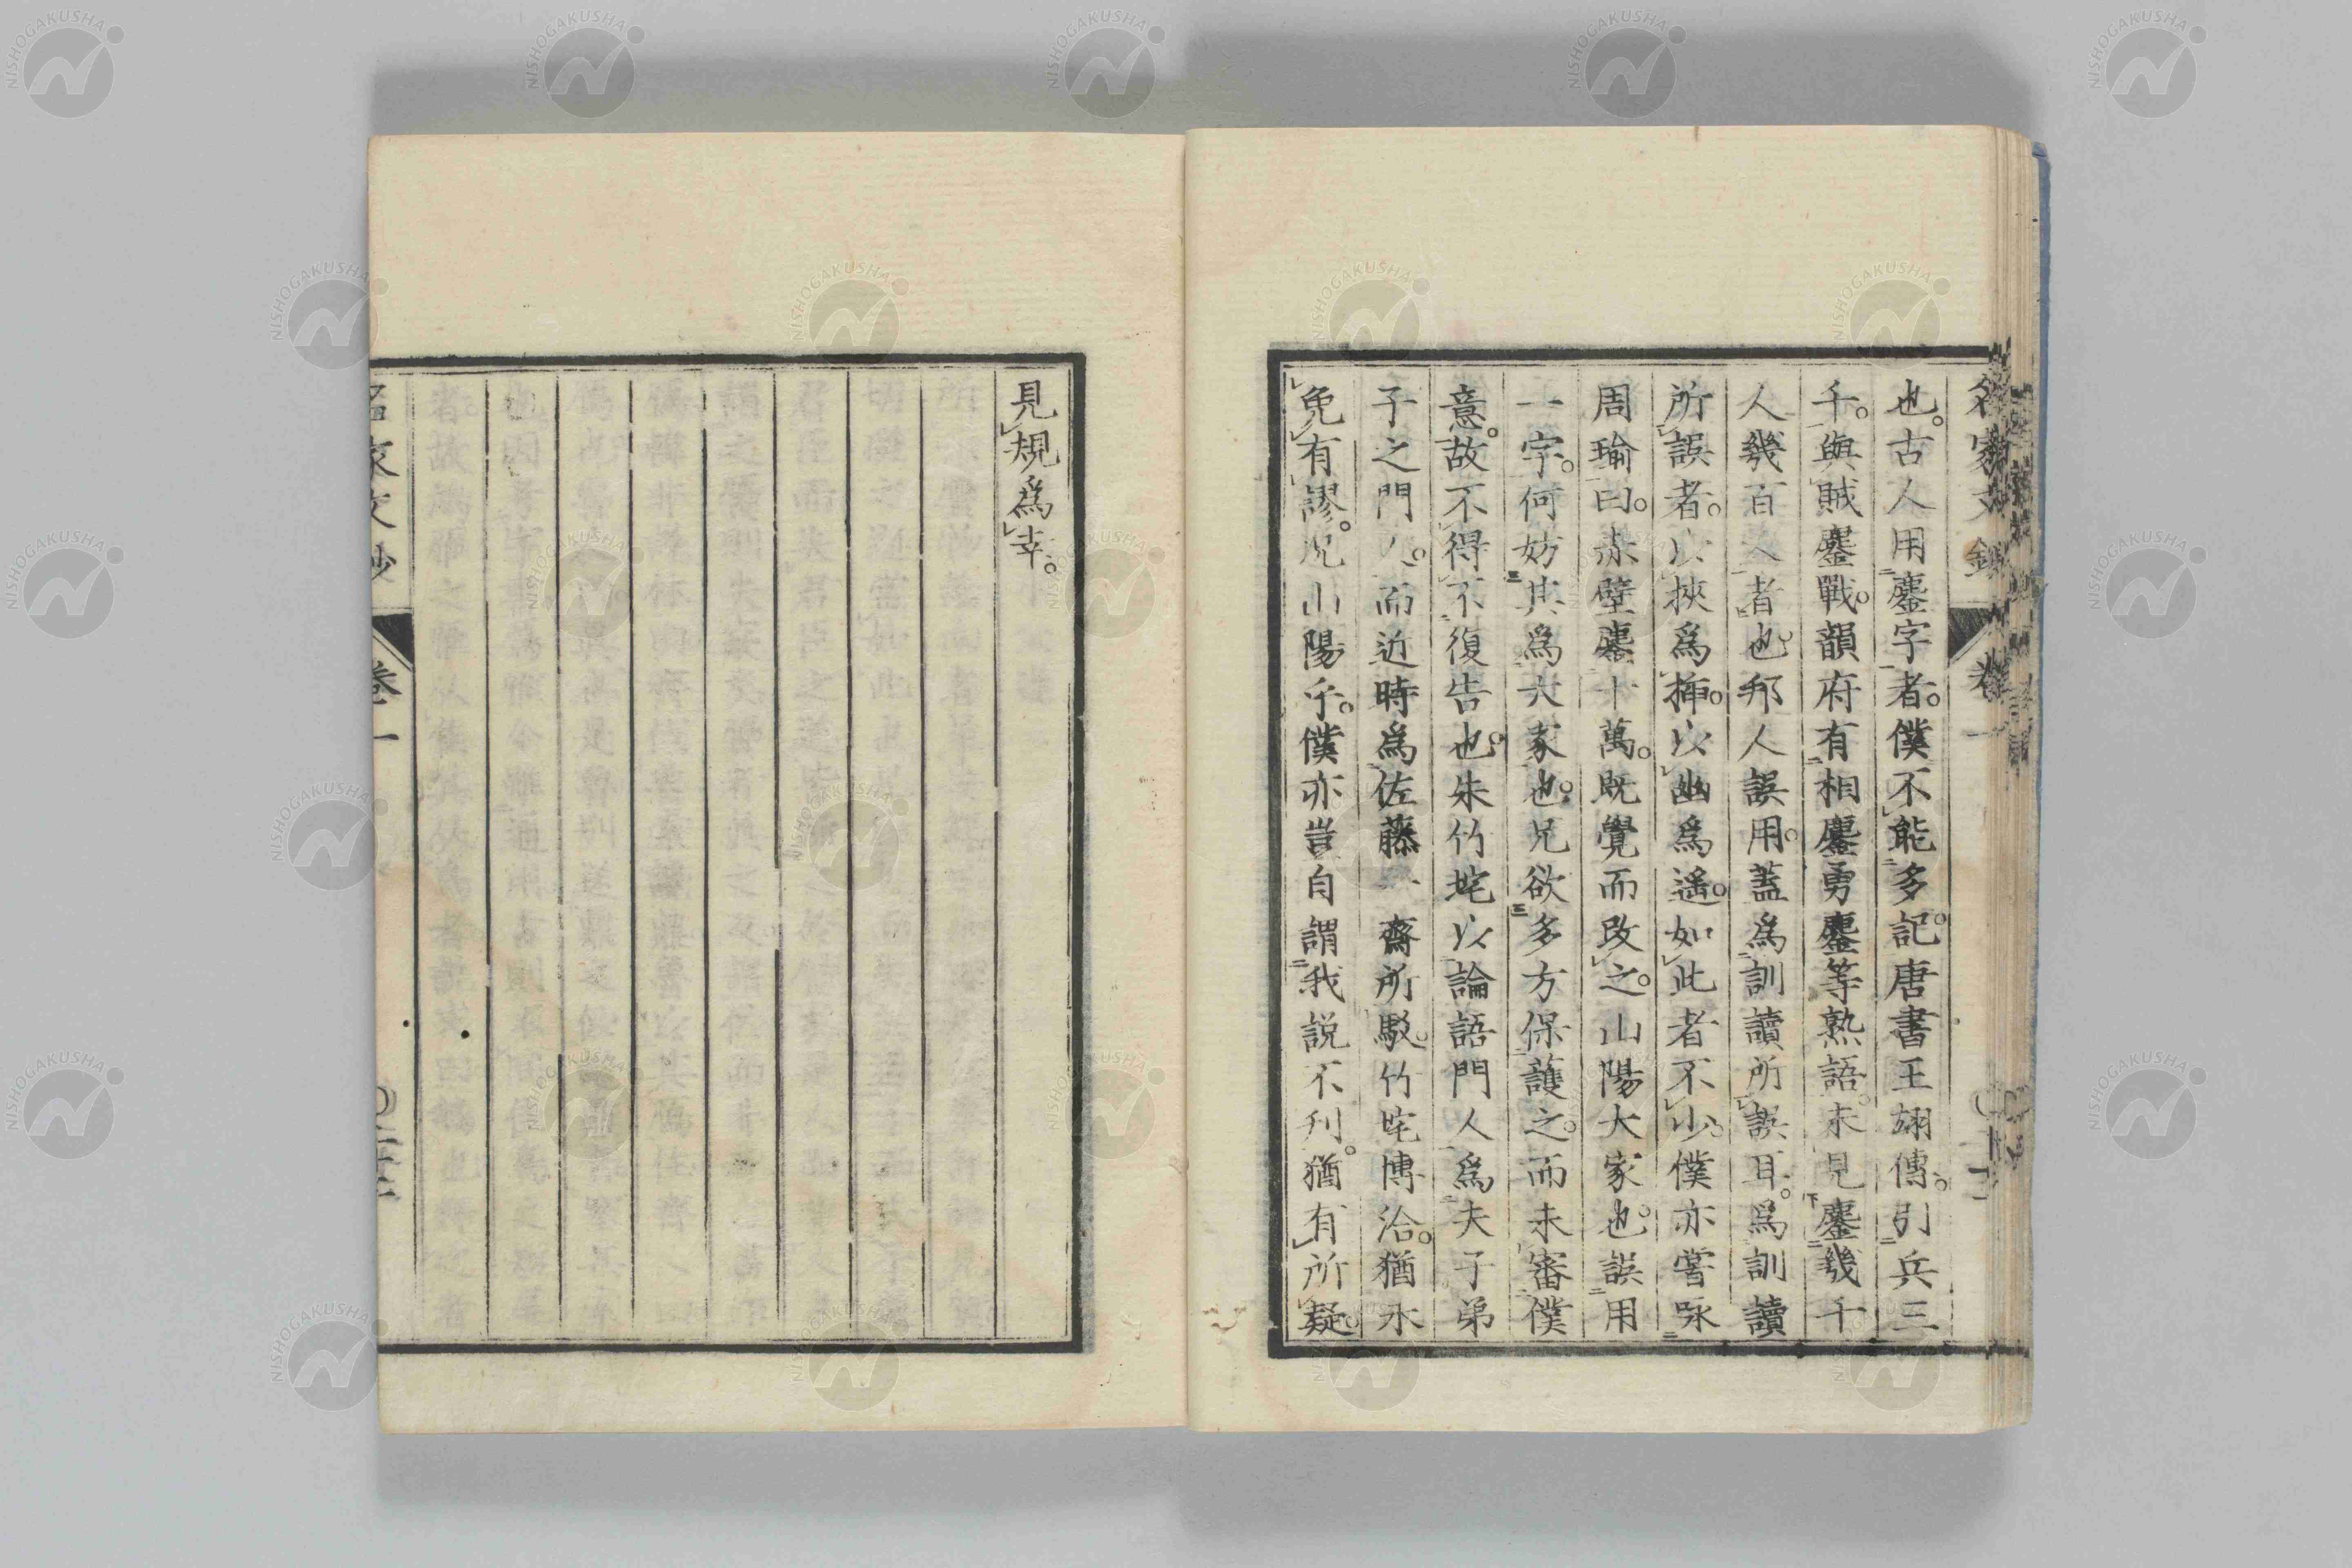 也。古人用鏖字者。僕不能多記。唐書王翃傳。引兵三
千。與賊鏖戰。韻府有相鏖勇鏖等熟語。未見鏖幾千
人幾百人者也。邦人誤用。蓋爲訓讀所誤耳。爲訓讀
所誤者。以挾爲揷。以幽爲遥。如此者不少。僕亦嘗咏
周瑜曰。赤壁鏖十萬。既覺而改之。山陽大家也。誤用
一字。何妨其爲大家也。兄欲多方保護之。而未審僕
意。故不得不復告也。朱竹垞以論語門人爲夫子弟
子之門人。而近時爲佐藤一齋所駁。竹垞博洽。猶不
免有謬。況山陽乎。僕亦豈自謂我說不刋。猶有所疑。
見規爲幸。
名家文鈔
卷一
名家文鈔
卷一
NISHOGAKUSHA